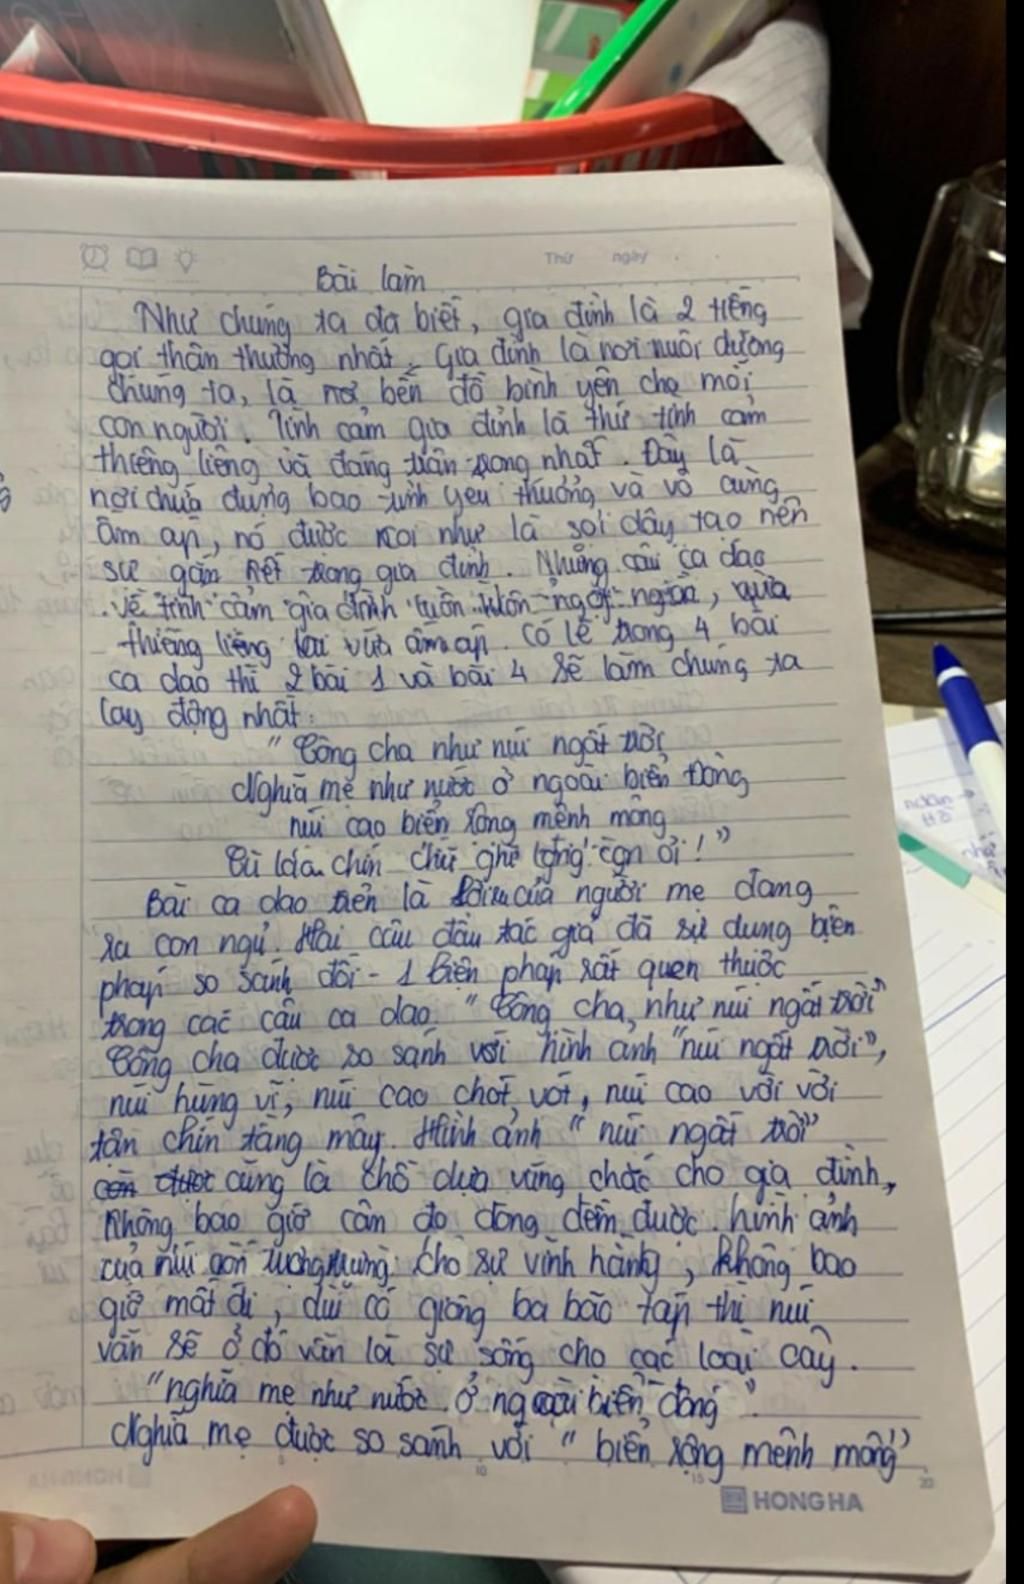 Thứ ngày
Bài làm
Như chúng ta đã biết, gia đình là 2 tiếng
gọi thân thương nhất. Gia đình là nơi nuôi dưỡng
chúng ta, là nơi bến đỗ bình yên cho mỗi
con người. Tình cảm gia đình là thứ tình cảm
thiêng liêng và đáng trân trọng nhất. Đây là
nơi chứa đựng bao tình yêu thương và vô cùng
ấm áp, nó được coi như là sợi dây tạo nên
sự gắn kết trong gia đình. Những câu ca dao
về tình cảm gia đình luôn luôn ngọt ngào, vừa
thiêng liêng lại vừa ấm áp. Có lẽ trong 4 bài
ca dao thì 2 bài 1 và bài 4 sẽ làm chúng ta
lay động nhất:
"Công cha như núi ngất trời
Nghĩa mẹ như nước ở ngoài biển Đông
núi cao biển rộng mênh mông
Cù lao chín chữ ghi lòng con ơi!"
Bài ca dao trên là lời của người mẹ đang
ru con ngủ. Hai câu đầu tác giả đã sử dụng biện
pháp so sánh đôi - 1 biện pháp rất quen thuộc
trong các câu ca dao. "Công cha, như núi ngất trời"
Công cha được so sánh với hình ảnh "núi ngất trời",
núi hùng vĩ, núi cao chót vót, núi cao vời vời
tận chín tầng mây. Hình ảnh "núi ngất trời"
cũng là chỗ dựa vững chắc cho gia đình,
không bao giờ cân đo đong đếm được. hình ảnh
của núi còn tượng trưng cho sự vĩnh hằng, không bao
giờ mất đi, dù có giông ba bão táp thì núi
vẫn sẽ ở đó vẫn là sự sống cho các loài cây.
"nghĩa mẹ như nước ở ngoài biển đông"
Nghĩa mẹ được so sánh với "biển rộng mênh mông"
HONG HA